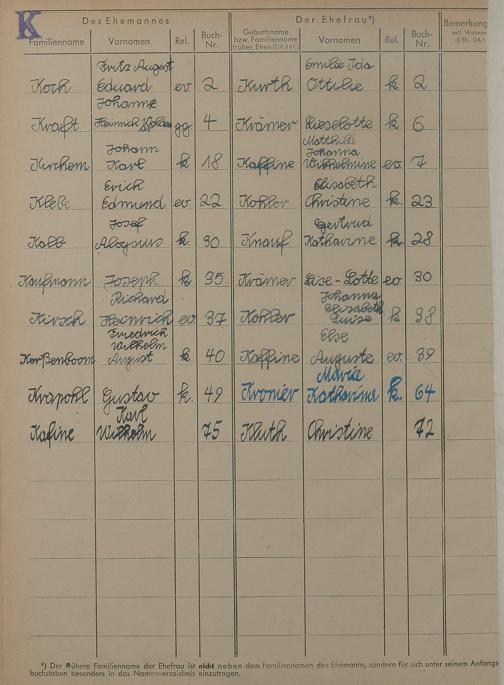 K
Des Ehemannes Der Ehefrau*)
Familienname Vornamen Rel. Buch-Nr. Geburtsname bzw. Familienname früher. Ehen (DA § 61) Vornamen Rel. Buch-Nr. Bemerkung
Fritz August Emilie Ida
Koch Eduard ev 2 Kurth Ottilie k 2
Johanne
Kraft Heinrich gg 4 Krämer Lieselotte k 6
Mathild
Johann Johanna
Kirchem Karl k 18 Kaffine Wilhelmine ev 7
Erich Elisabeth
Klebe Edmund ev. 22 Kohler Christine k. 23
Josef Gertrud
Kolb Aloysius k. 30 Knauf Katharine k. 28
Kaufmann Joseph k 35 Krämer Lise-Lotte ev 30
Richard Johanna
Elisabeth
Kirsch Heinrich ev. 37 Kohler Luise k 38
Friedrich
Wilhelm Else
Kerßenboom August k 40 Kaffine Auguste ev. 39
Marie
Krapohl Gustav k. 49 Kromer Katharina k. 64
Karl
Kafine Wilhelm 75 Kluth Christine 72
*) Der frühere Familienname der Ehefrau ist nicht neben dem Familiennamen des Ehemanns, sondern für sich unter seinem Anfangs-
buchstaben besonders in das Namenverzeichnis einzutragen.